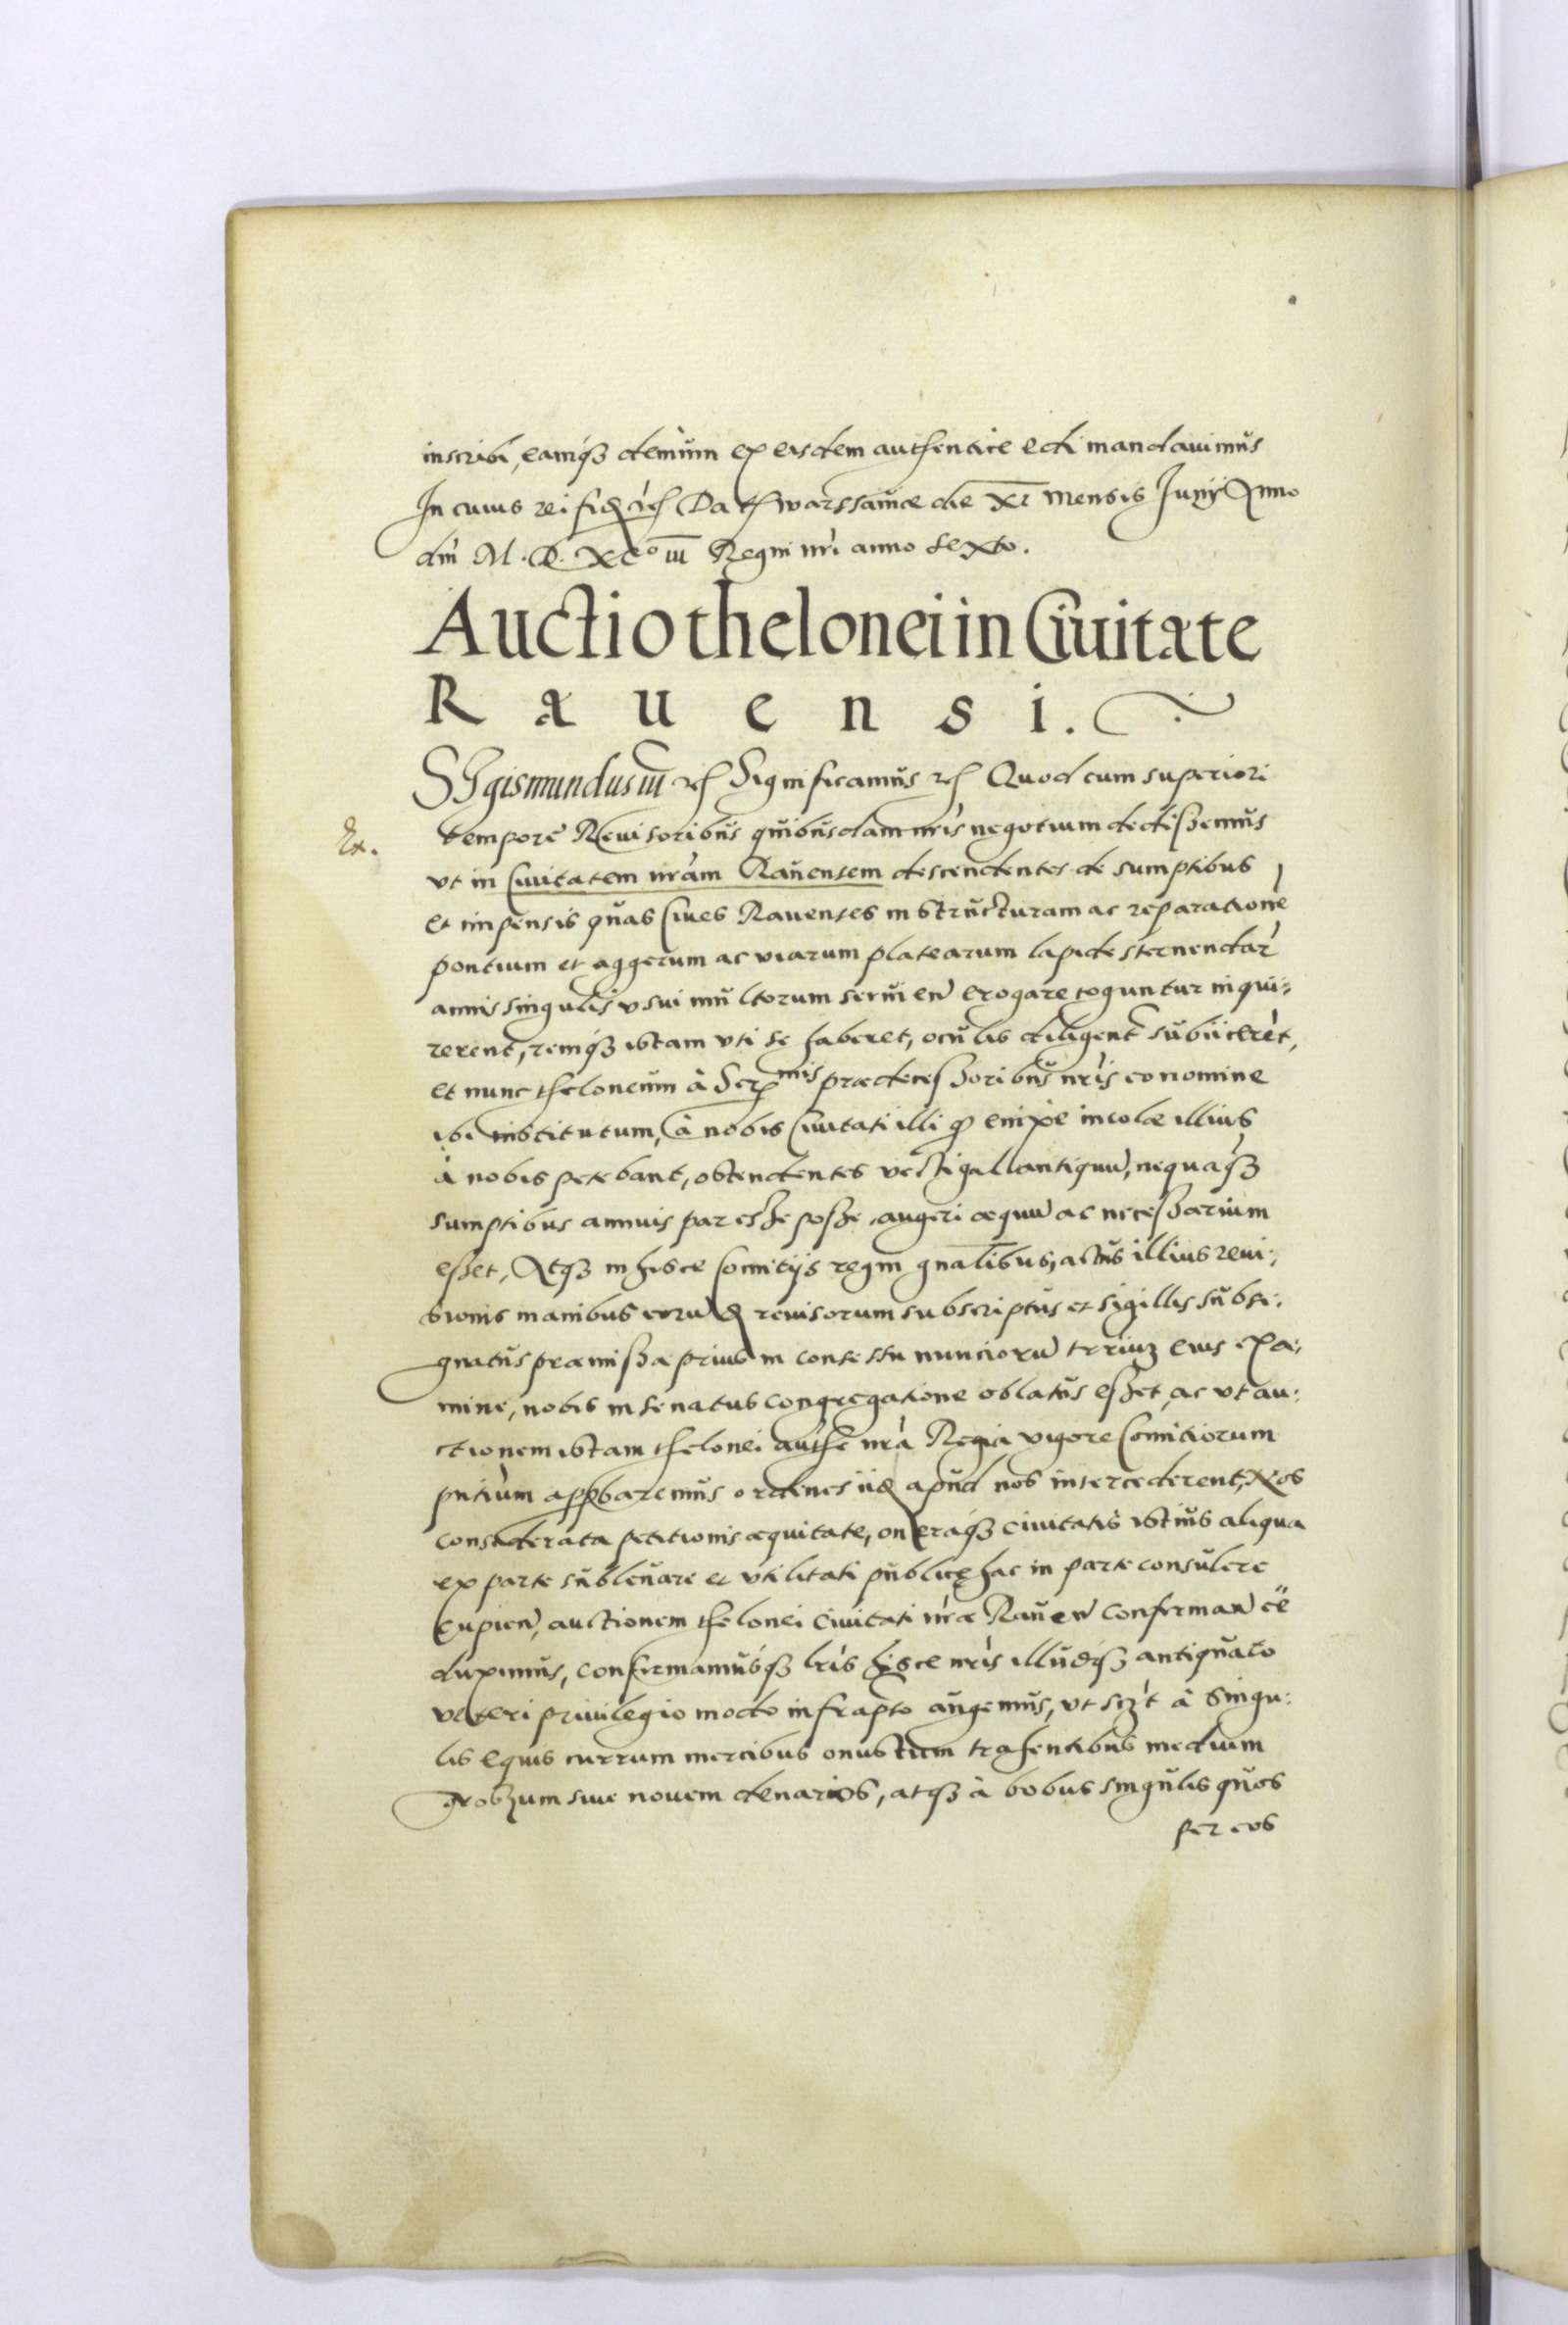 inscribi, eamq₃ demùm ex eisdem authenticè edi mandauimus
In cuius rei fid ec Dat Warssauiæ die XI Mensis Junij Anno
dni M. D. XCo III Regni nri anno sexto.
Auctio thelonei in Ciuitate
Rauensi.
SIgismundus III ec Significamus ec Quod cum superiori
tempore Reuisoribus quibusdam nris negotium dedissemus
Ex.
vt in Ciuitatem nram Rauensem descendentes de sumptibus
et impensis quas Ciues Rauenses in structuram ac reparatione
pontium et aggerum ac viarum platearum lapide sternendar
annis singulis vsui multorum seruien erogare coguntur inqui:
rerent, remq₃ istam vti se haberet, oculis diligent subiicerēt,
et nunc theloneum à Sermis prædecessoribus nris eo nomine
ibi institutum, à nobis Ciuitati illi qd enixe incolæ illius
à nobis petebant, ostendentes vectigal antiquu, nequaq₃
sumptibus annuis par esse posse, augeri æquu ac necessarium
esset, Atq₃ in hisce Comitijs regni gnalibus, actus illius reui:
sionis manibus eorud reuisorum subscriptus et sigillis subsi:
gnatus præmissa prius in consessu nunciorū trium eius exa:
mine, nobis in senatus congregatione oblatus esset, ac vt au:
ctionem istam thelonei authe nra Regia vigore Comitiorum
pntium approbaremus ordines iid apud nos intercederent, Nos
considerata petitionis æquitate, oneraq₃ ciuitatis istius aliqua
ex parte subleuare et vtilitati publicę hac in parte consulere
Cupien, auctionem thelonei Ciuitati nræ Rauen confirman ee
duximus, confirmamusq₃ lris hisce nris illudq₃ antiquato
veteri priuilegio modo infrapto augemus, vt sczt à singu:
lis equis currum mercibus onustum trahentibus medium
grossum siue nouem denarios, atq₃ à bobus singulis quos
per eos